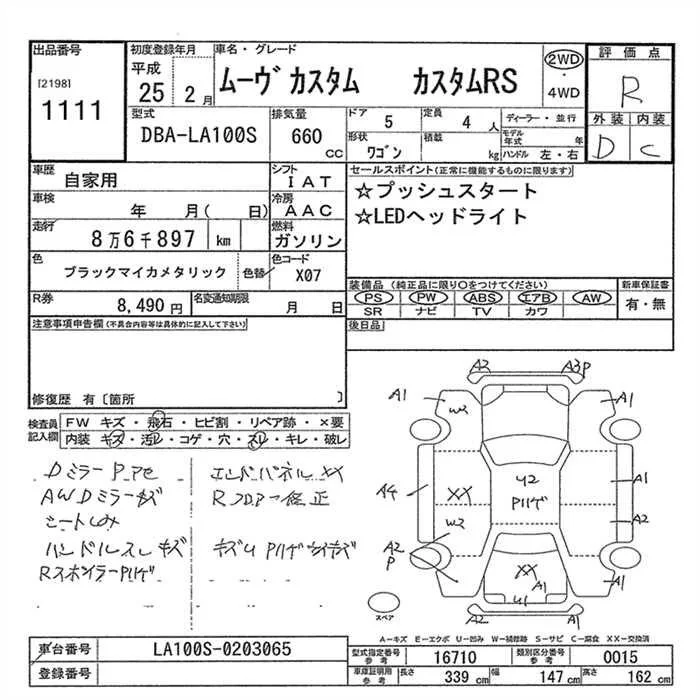 出品番号
[2198]
1111
初度登録年月
平成
25 2月
車名・グレード
ムーヴ カスタム カスタムRS
2WD
・
4WD
評価点
R
外装 内装
D C
型式
DBA-LA100S
排気量
660
CC
ドア 5
形状
ワゴン
定員 4 人
積載 kg
ディーラー・並行
モデル年式 年
ハンドル 左・右
車歴 自家用
シフト
IAT
車検 年 月( 日)
冷房
AAC
走行 8万6千897 km
燃料
ガソリン
色 ブラックマイカメタリック 色替
色コード
X07
R券 8,490円
名変通知期限 月 日
セールスポイント(正常に機能するものに限ります)
☆プッシュスタート
☆LEDヘッドライト
装備品(純正品に限り○をつけてください)
PS PW ABS エアB AW
SR ナビ TV カワ
新車保証書
有・無
後日品
注意事項申告欄(不具合内容等は具体的に記入して下さい)
修復歴 有〔箇所 〕
検査員記入欄
FW キズ・飛石・ヒビ割・リペア跡・×要
内装 キズ・汚レ・コゲ・穴・スレ・キレ・破レ
Dミラー
AWDミラーキズ
シート
ハンドルスレ キズ
Rスポイラー
エンドパネル
Rフロアー修正
A2 A3P
A1 W2 A1
A4 XX U2 A1
W2 A2
A2
P
XX
A1 A1
U1
A2
スペア
A-キズ E-エクボ U-凹み W-補修跡 S-サビ C-腐食 XX-交換済
車台番号 LA100S-0203065
登録番号
型式指定番号
参考
16710
類別区分番号
参考
0015
車庫証明用
参考
長さ 339 cm 幅 147 cm 高さ 162 cm